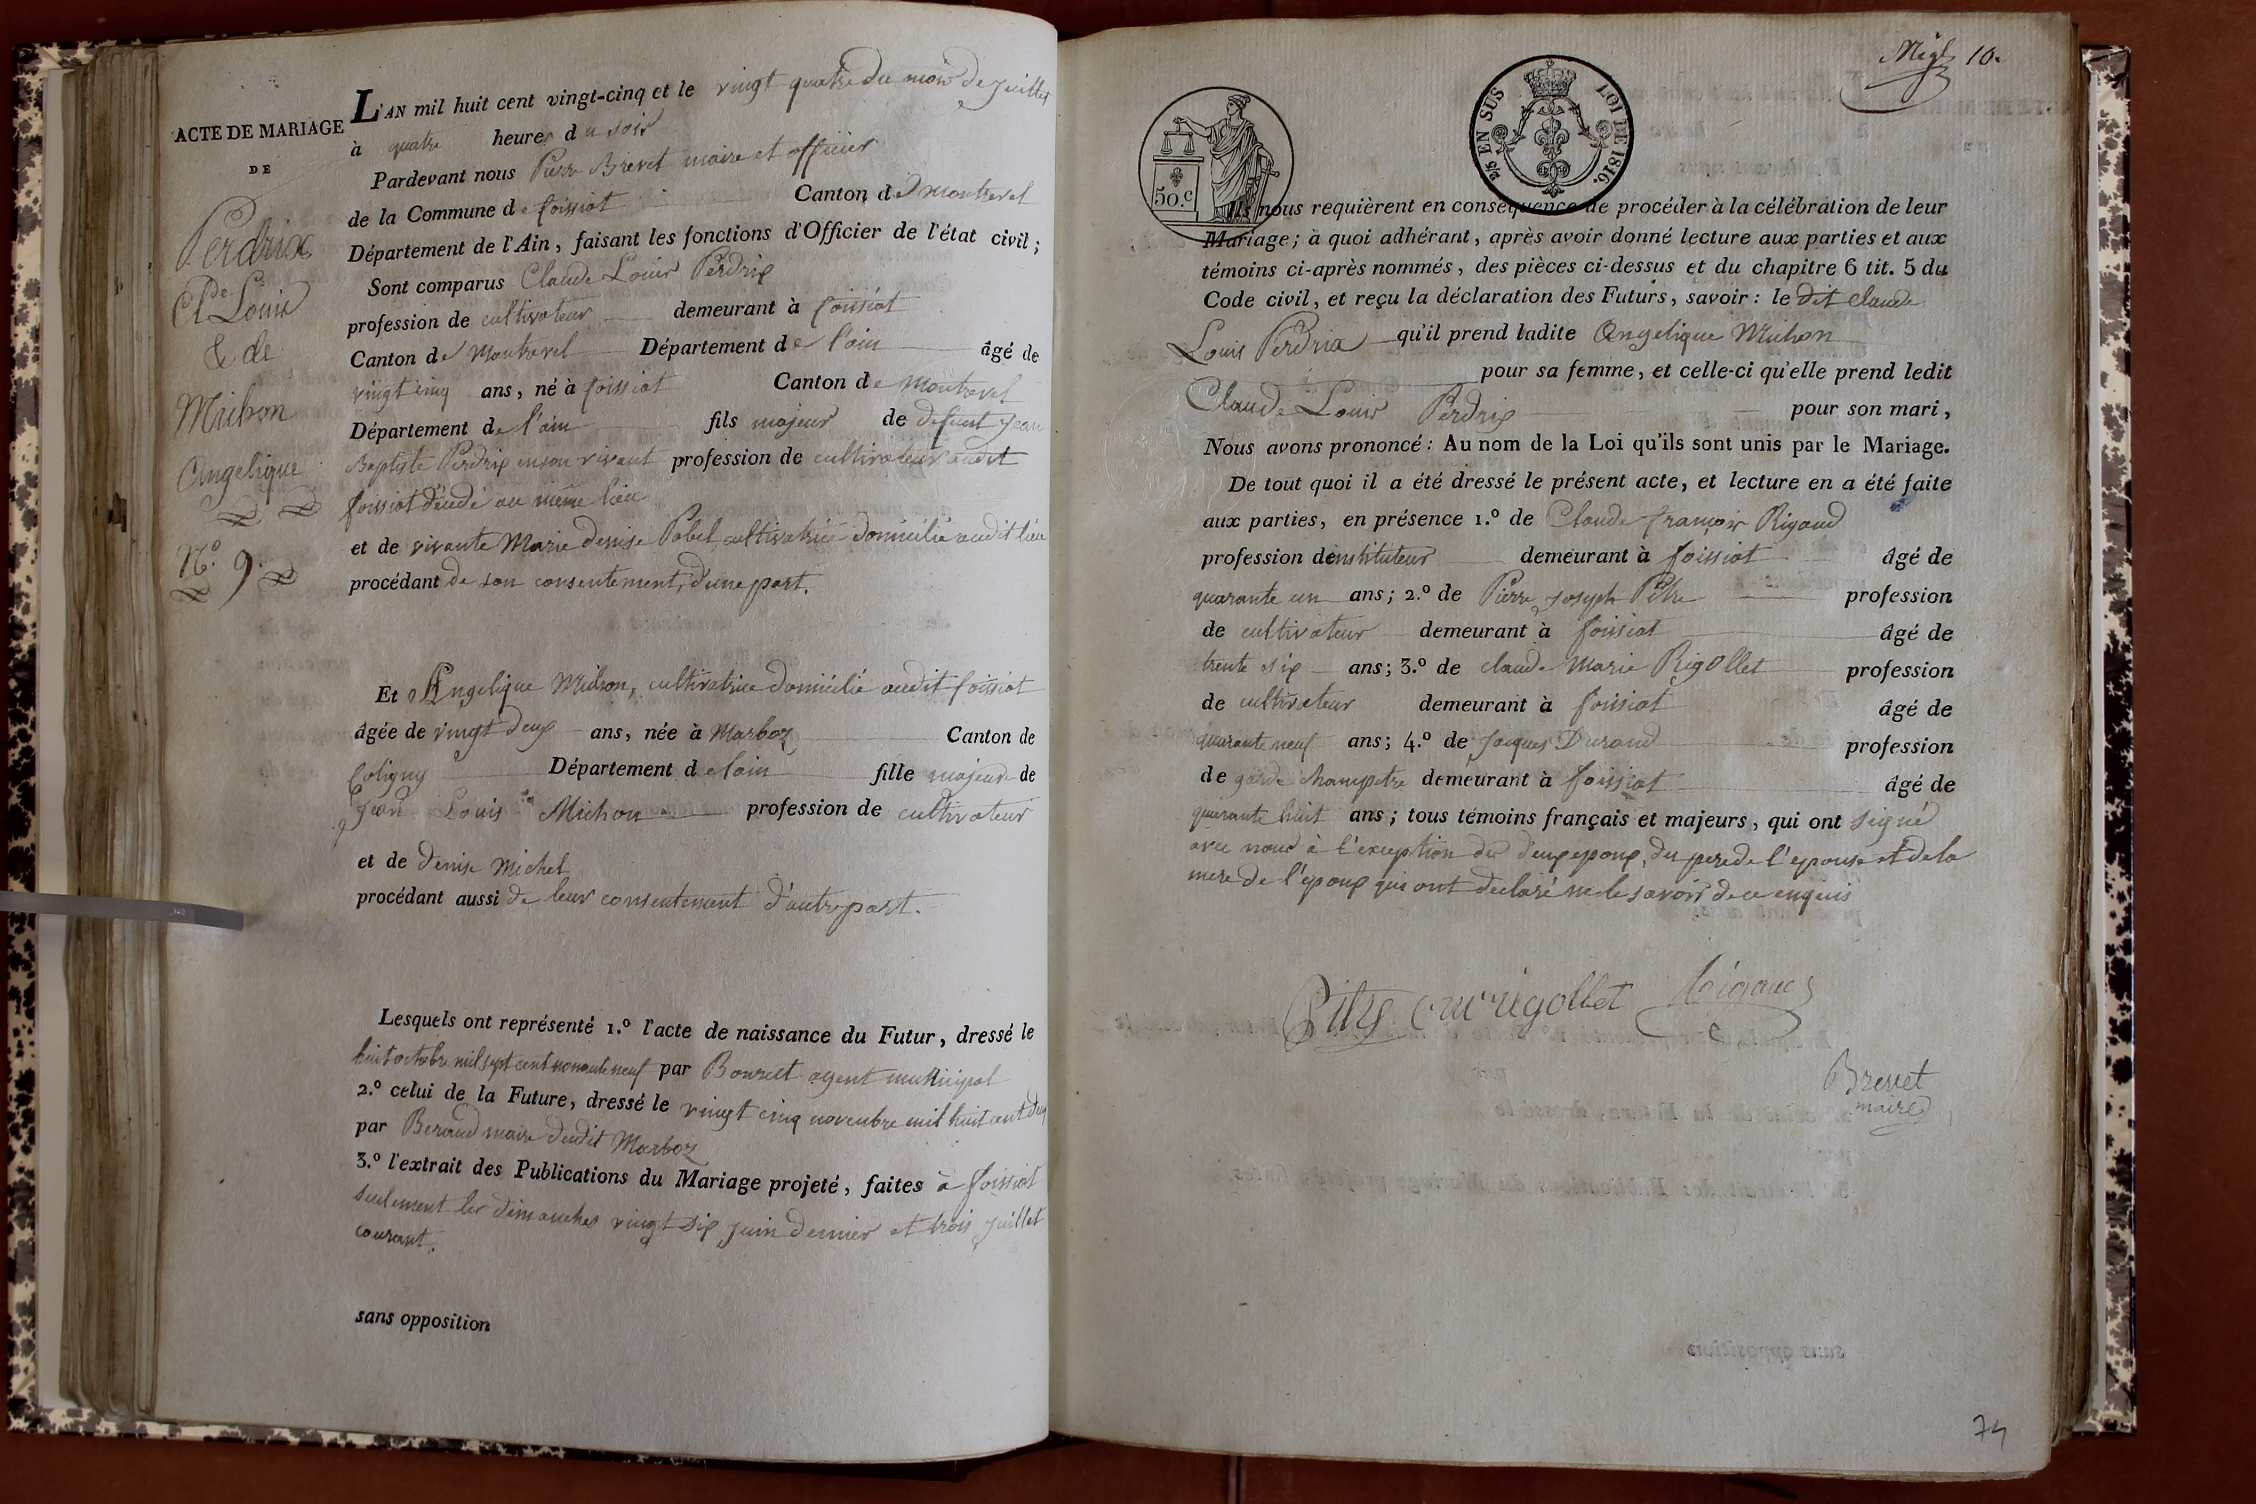 ACTE DE MARIAGE
DE
Perdrix
Cl.de Louis
& de
Michon
Angelique
N.o 9.
L'AN mil huit cent vingt-cinq et le vingt quatre du mois de juillet
à quatre heures du soir
Pardevant nous Pierre Brevet maire et officier
de la Commune de foissiat Canton de Montrevel
Département de l'Ain, faisant les fonctions d'Officier de l'état civil;
Sont comparus Claude Louis Perdrix
profession de cultivateur demeurant à foissiat
Canton de Montrevel Département de l'ain âgé de
vingt cinq ans, né à foissiat Canton de Montrevel
Département de l'ain fils majeur de defunt Jean
Baptiste Perdrix en son vivant profession de cultivateur audit
foissiat décédé au même lieu
et de vivante Marie denise Pobel cultivatrice domicilié audit lieu
procédant de son consentement, d'une part.
Et Angelique Michon, cultivatrice domicilié audit foissiat
âgée de vingt deux ans, née à Marboz Canton de
Coligny Département de lain fille majeur de
Jean Louis Michon profession de cultivateur
et de denise Michel
procédant aussi de leur consentement d'autre part.
Lesquels ont représenté 1.o l'acte de naissance du Futur, dressé le
huit octobre mil sept cent nonante neuf par agent municipal
2.o celui de la Future, dressé le vingt cinq novembre mil huit cent deux
par Beraud maire dudit Marboz
3.o l'extrait des Publications du Mariage projeté, faites à foissiat
seulement les dimanches vingt six juin dernier et trois juillet
courant.
sans opposition
10.
50.c
2/5 EN SUS LOI DE 1816.
Ils nous requièrent en conséquence de procéder à la célébration de leur
Mariage; à quoi adhérant, après avoir donné lecture aux parties et aux
témoins ci-après nommés, des pièces ci-dessus et du chapitre 6 tit. 5 du
Code civil, et reçu la déclaration des Futurs, savoir: le dit claude
Louis Perdrix qu'il prend ladite Angelique Michon
pour sa femme, et celle-ci qu'elle prend ledit
Claude Louis Perdrix pour son mari,
Nous avons prononcé: Au nom de la Loi qu'ils sont unis par le Mariage.
De tout quoi il a été dressé le présent acte, et lecture en a été faite
aux parties, en présence 1.o de Claude françois Rigaud
profession de instituteur demeurant à foissiat âgé de
quarante un ans; 2.o de Pierre Joseph Pitre profession
de cultivateur demeurant à foissiat âgé de
trente six ans; 3.o de claude Marie Rigollet profession
de cultivateur demeurant à foissiat âgé de
quarante neuf ans; 4.o de Jacques Durand profession
de garde champetre demeurant à foissiat âgé de
quarante huit ans; tous témoins français et majeurs, qui ont signé
avec nous à l'exception des deux epoux, du pere de l'epouse et de la
mere de l'epoux qui ont declaré ne le savoir de ce enquis
Pitre cm rigollet Rigaud
Brevet
maire
74